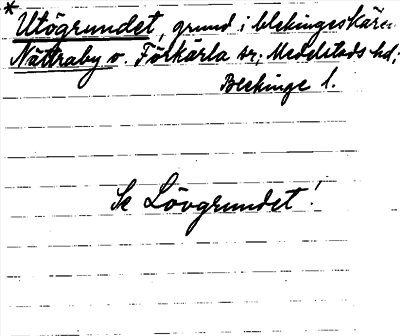 *Utögrundet, grund i blekingeskären
Nättraby o. Förkärla sr; Medelstads hd;
Blekinge l.
Se Lövgrundet!